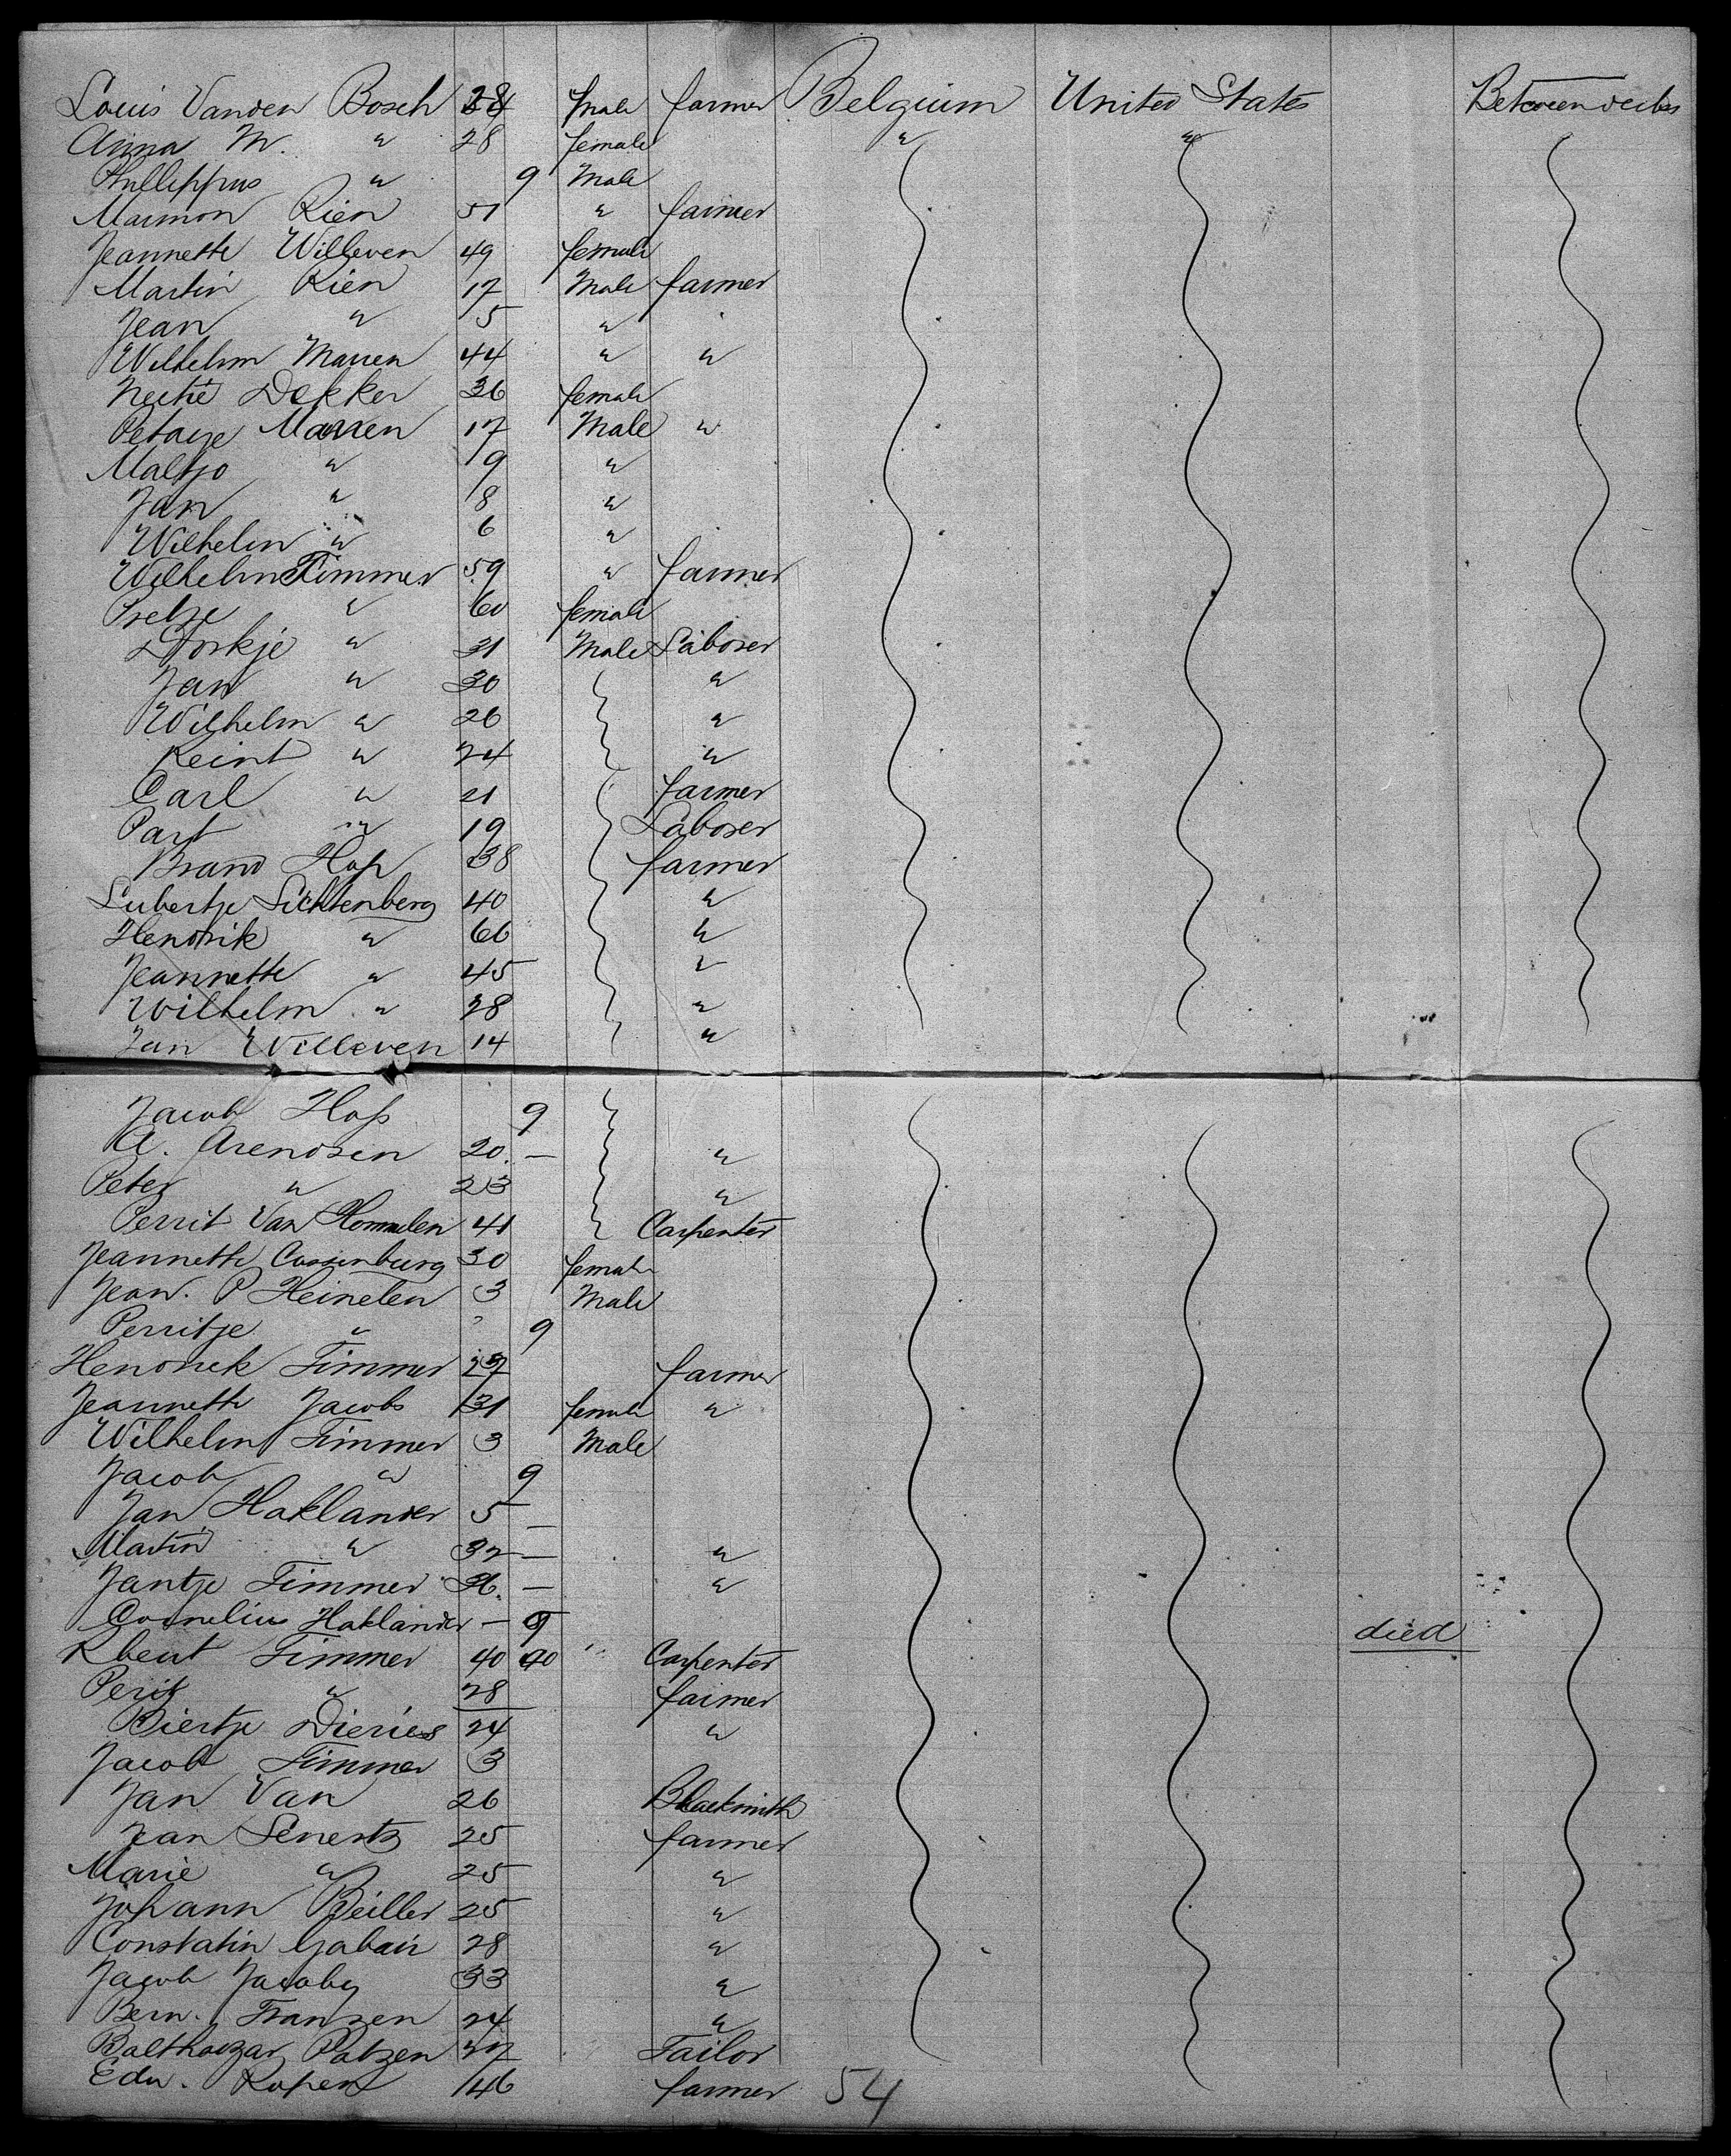 Louis Vanden Bosch 28 Male farmer Belgium United States Between decks
Anna M. " 28 female " "
Phillippus " 9 Male
Marmon Rien 51 " farmer
Jeannette Willeven 49 female
Martin Rien 17 Male farmer
Jean " 5 "
Wilhelm Marren 44 " "
Neetie Dekker 36 female
Petaye Marren 17 Male "
Maltjo " 9 "
Jan " 8 "
Wilhelm " 6 "
Wilhelm Timmer 59 " farmer
Pretze " 60 female
Dorkje " 31 Male Laborer
Jan " 30 "
Wilhelm " 26 "
Reint " 24 "
Carl " 21 farmer
Part " 19 Laborer
Brand Hop 38 farmer
Lubertje Lichtenberg 40 "
Hendrik " 66 "
Jeannette " 45 "
Wilhelm " 28 "
Jan Willeven 14 "
Jacob Hop 9
A. Arendsen 20. — "
Peter " 23 "
Perrit Van Hommelen 41 Carpenter
Jeannette Cassenburg 30 female
Jean. P Heinelen 3 Male
Perritje " 9
Hendriek Timmer 27 farmer
Jeannette Jacobs 31 female "
Wilhelm Timmer 3 Male
Jacob " 9
Jan Haklander 5 —
Martin " 32 — "
Jantje Timmer 36. — "
Cornelius Haklander — 9 died
Rbeut Timmer 40 Carpenter
Perit " 28 farmer
Biertje Dieries 24 "
Jacob Timmer 3
Jan Van 26 Blacksmith
Jean Lenertz 25 farmer
Marie " 25 "
Johann Beiller 25 "
Constatin Gabair 28 "
Jacob Jacoby 33 "
Bern. Franzen 24 "
Balthazar Patzen Tailor
Edw. Ropen 46 farmer 54